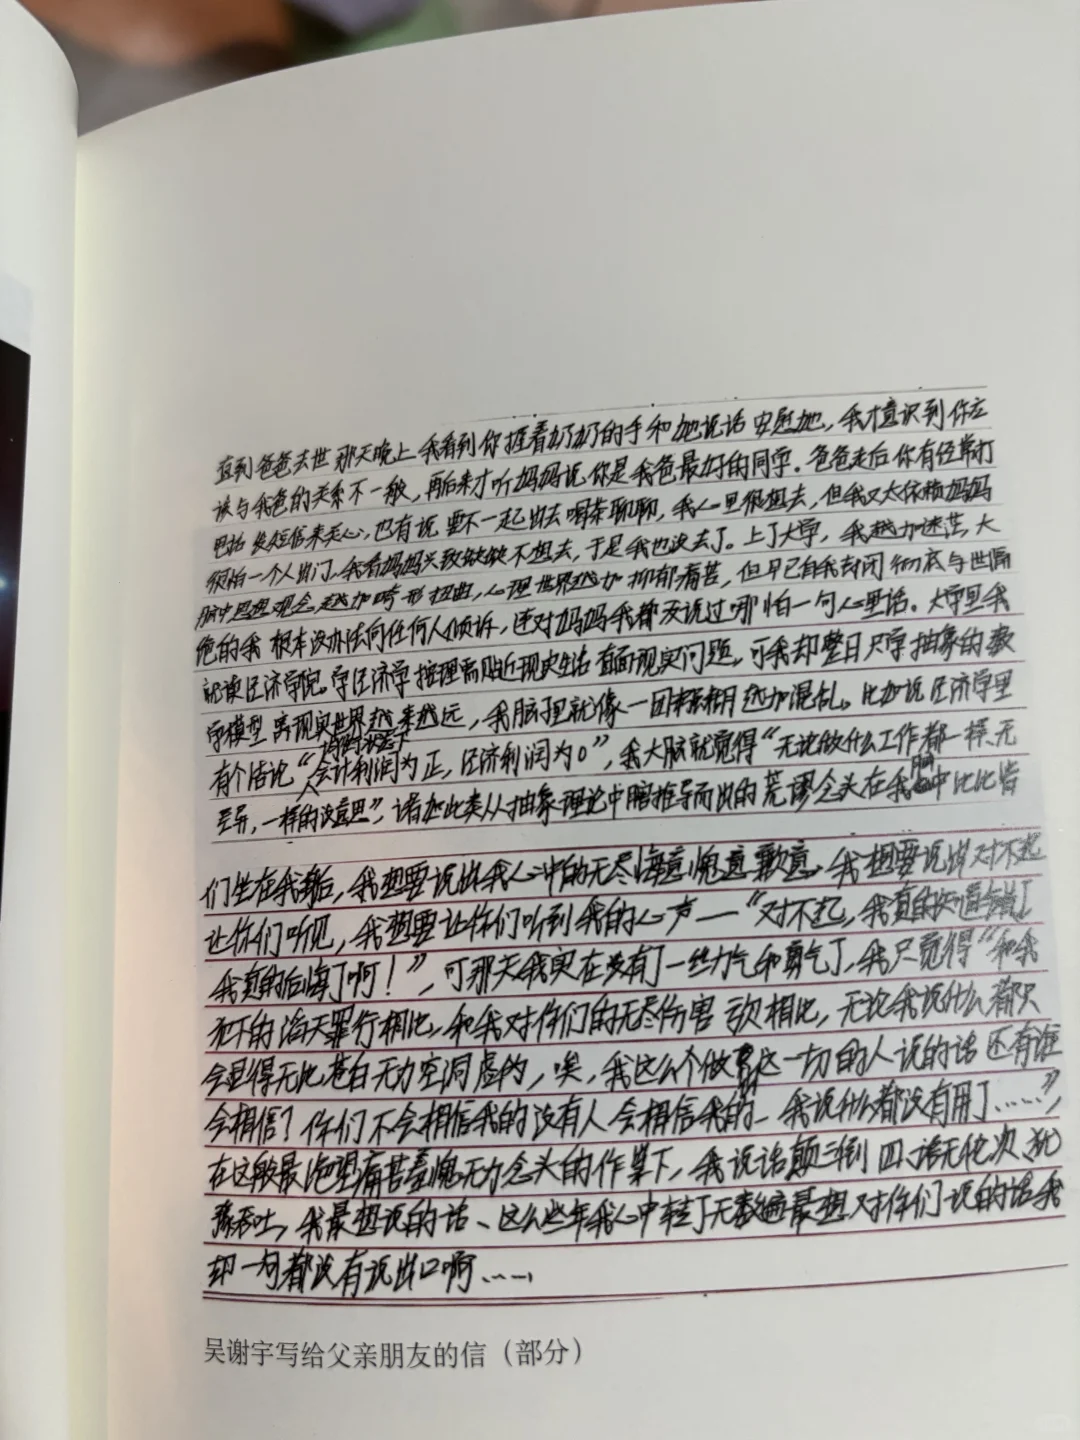 直到爸爸去世那天晚上我看到你握着奶奶的手和她说话安慰她，我才意识到你应
该与我爸的关系不一般，再后来才听妈妈说你是我爸最好的同学。爸爸走后你有经常打
电话发短信来关心，也有说要不一起出去喝茶聊聊，我心里很想去，但我又太依赖妈妈
很怕一个人出门，我看妈妈兴致缺缺不想去，于是我也没去了。上了大学，我越加迷茫，大
脑中思想观念越加畸形扭曲，心理世界越加抑郁痛苦，但早已自我封闭彻底与世隔
绝的我根本没办法向任何人倾诉，连对妈妈我都没说过哪怕一句心里话。大学里我
就读经济学院。学经济学按理需贴近现实生活直面现实问题，可我却整日只学抽象的数
学模型离现实世界越来越远，我脑里就像一团浆糊越加混乱。比如说经济学里
有个结论“均衡状态下会计利润为正，经济利润为0”，我大脑就觉得“无论做什么工作都一样、无
差异，一样的没意思”，诸如此类从抽象理论中推导而出的荒谬念头在我脑中比比皆
们坐在我身后，我想要说出我心中的无尽悔意愧意歉意，我想要说出对不起
让你们听见，我想要让你们听到我的心声——“对不起，我真的知道错了
我真的后悔了啊！”，可那天我实在没有了一丝力气和勇气了，我只觉得“和我
犯下的滔天罪行相比，和我对你们的无尽伤害相比，无论我说什么都只
会显得无比苍白无力空洞虚伪，唉，我这么个做出这一切的人说的话还有谁
会相信？你们不会相信我的没有人会相信我的，我说什么都没有用了……”，
在这般最绝望痛苦羞愧无力念头的作祟下，我说话颠三倒四、语无伦次、犹
豫吞吐，我最想说的话、这么些年我心中转了无数遍最想对你们说的话我
却一句都没有说出口啊……
吴谢宇写给父亲朋友的信（部分）